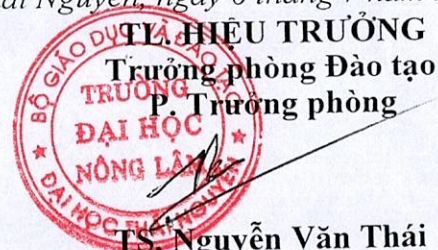 Nguyên, ngày 6 tháng
TL. HIỆU TRƯỞNG
Trưởng phòng Đào tạo
P. Trưởng phòng
BỘ GIÁO DỤC VÀ ĐÀO TẠO
TRƯỜNG
ĐẠI HỌC
NÔNG LÂM
ĐẠI HỌC THÁI NGUYÊN
TS. Nguyễn Văn Thái